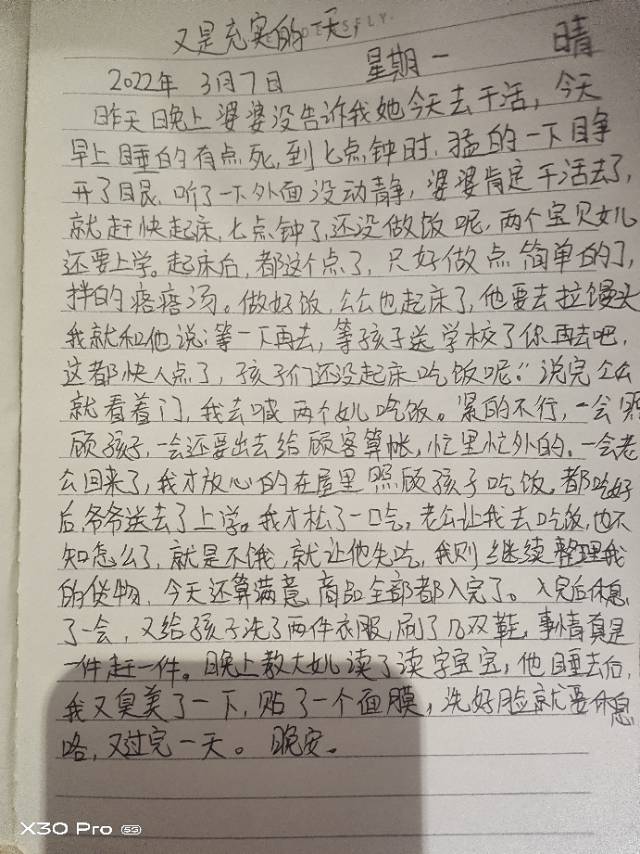 又是充实的一天,
2022年 3月7日 星期一 晴
昨天晚上婆婆没告诉我她今天去干活，今天
早上睡的有点死，到七点钟时，猛的一下睁
开了眼，听了一下外面没动静，婆婆肯定干活去了，
就赶快起床，七点钟了，还没做饭呢，两个宝贝女儿
还要上学。起床后，都这个点了，只好做点简单的了，
拌的疙瘩汤。做好饭，公公也起床了，他要去拉馒头
我就和他说：等一下再去，等孩子送学校了你再去吧，
这都快八点了，孩子们还没起床吃饭呢！”说完公公
就看着门，我去喊两个女儿吃饭。紧的不行，一会照
顾孩子，一会还要出去给顾客算帐，忙里忙外的。一会老
公回来了，我才放心的在屋里照顾孩子吃饭。都吃好
后，爷爷送去了上学。我才松了一口气，老公让我去吃饭，也不
知怎么了，就是不饿，就让他先吃，我则继续整理我
的货物，今天还算满意，商品全部都入完了。入完后休息
了一会，又给孩子洗了两件衣服，刷了几双鞋，事情真是
一件赶一件。晚上教大女儿读了读字宝宝，他睡去后，
我又臭美了一下，贴了一个面膜，洗好脸就要休息
咯，又过完一天。 晚安。
X30 Pro 5G